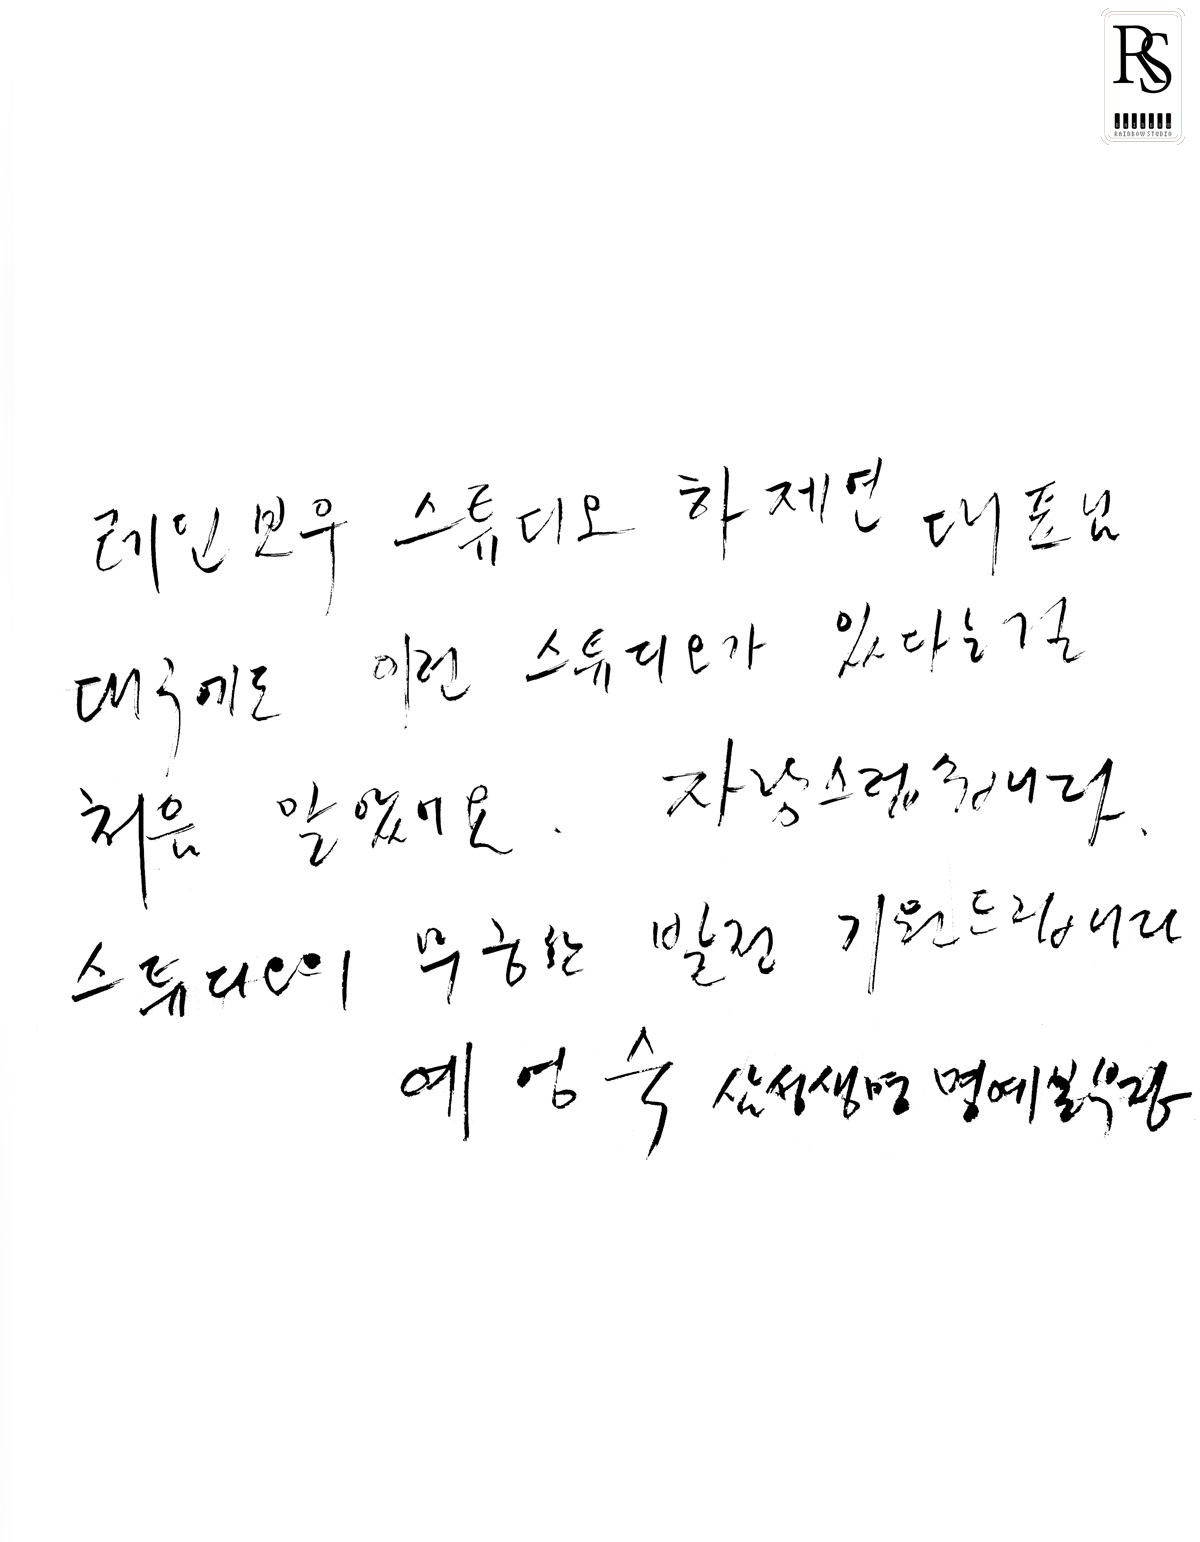 RS
RAINBOW STUDIO
레인보우 스튜디오 하제연 대표님
대구에도 이런 스튜디오가 있다는걸
처음 알았어요. 자랑스럽습니다.
스튜디오의 무궁한 발전 기원드립니다
예영숙 삼성생명 명예본부장